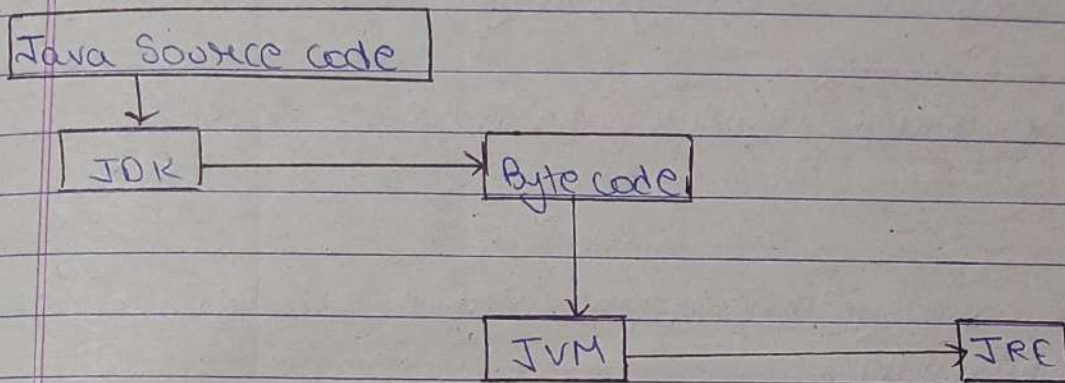 Java Source code
JDK
Byte code
JVM
JRE